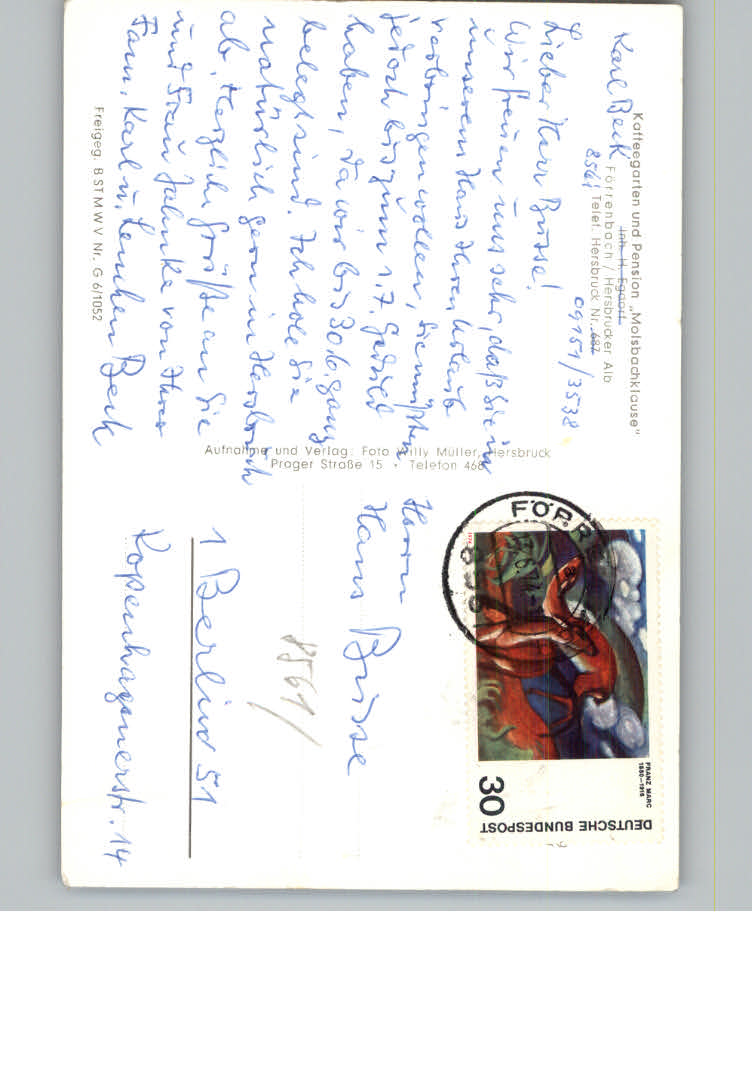 Kaffeegarten und Pension „Molsbachklause"
Inh. H. Eggert
Karl Beck
Förrenbach / Hersbrucker Alb
8561 Telef. Hersbruck Nr. 687
09151/3538
Lieber Herr Busse!
Wir freuen uns sehr, daß Sie in
unserem Haus Ihren Urlaub
verbringen wollen, Sie müßten
jedoch bis zum 1.7. Geduld
haben, da wir bis 30.6. ganz
belegt sind. Ich hole Sie
natürlich gern in Hersbruck
ab. Herzliche Grüße an Sie
und Frau Jahnke von Ihrer
Fam. Karl u. Lenchen Beck
Freigeg. BSTMWV Nr. G 6/1052
Aufnahme und Verlag: Foto Willy Müller, Hersbruck
Prager Straße 15 • Telefon 468
FÖRRE
8561
FRANZ MARC
1880–1916
30
DEUTSCHE BUNDESPOST
Herrn
Hans Busse
8561/
1 Berlin 51
Kopenhagenerstr. 14